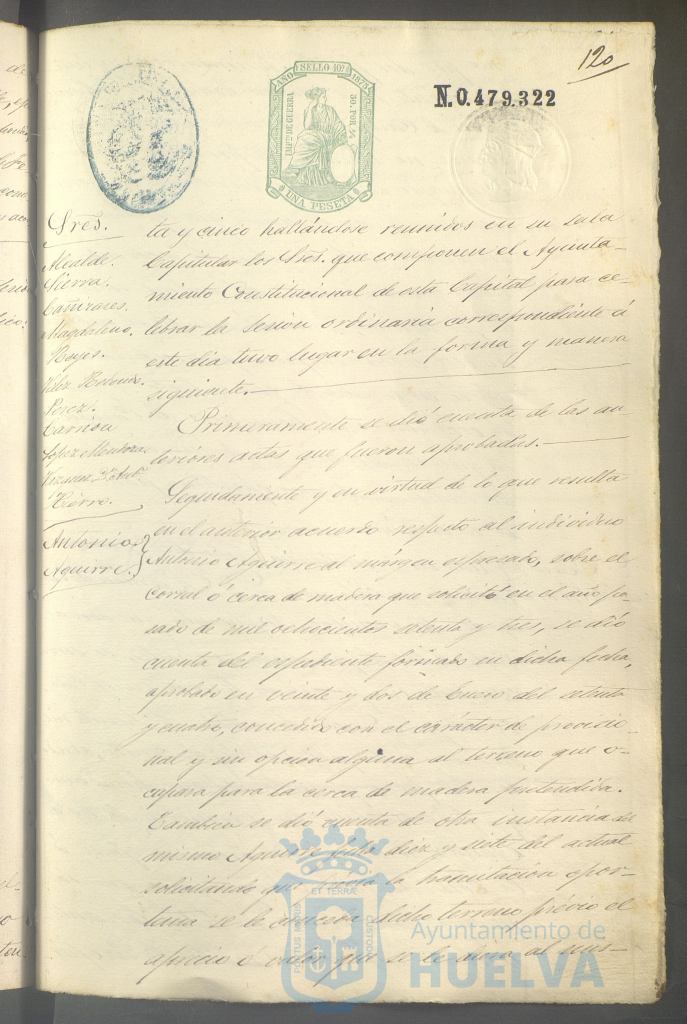 120
AÑO SELLO 10º 1875
IMPTO DE GUERRA
50 POR %
UNA PESETA
N.0.479.322
Sres.
Alcalde.
Sierra.
Cañizares.
Magdaleno.
Hayes.
Velez
Perez.
Carrion
Lopez Mendoza
Vazquez Dn Antº
Hierro.
Antonio
Aguirre.
ta y cinco hallándose reunidos en su sala
Capitular los Sres. que componen el Ayunta-
miento Constitucional de esta Capital para ce-
lebrar la sesion ordinaria correspondiente á
este dia tuvo lugar en la forma y manera
siguiente.
Primeramente se dió cuenta de las an-
teriores actas que fueron aprobadas.
Seguidamente y en virtud de lo que resulta
en el anterior acuerdo respecto al individuo
Antonio Aguirre al márgen espresado, sobre el
corral ó cerca de madera que solicitó en el año pa-
sado de mil ochocientos setenta y tres, se dió
cuenta del espediente formado en dicha fecha,
aprobado en veinte y dos de Enero del setenta
y cuatro, concedido con el carácter de provicio-
nal y sin opcion alguna al terreno que o-
cupara para la cerca de madera pretendida.
Tambien se dió cuenta de otra instancia del
mismo Aguirre fecha diez y siete del actual
solicitando que previa la tramitacion opor-
tuna se le conceda dicho terreno prévio el
aprecio ó valor que se le diera al mis-
PORTUS MARIS ET TERRAE CUSTODIA
Ayuntamiento de
HUELVA